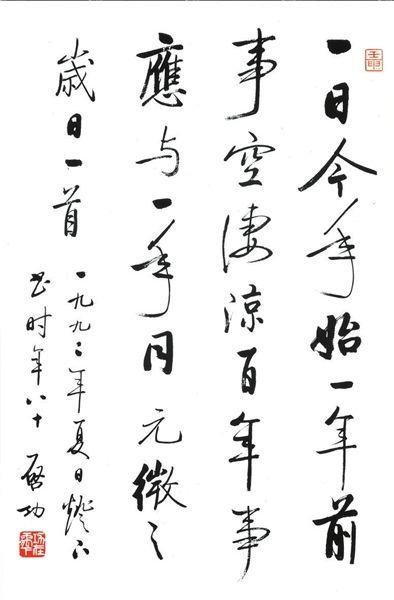 一日今年始一年前
事空淒涼百年事
應与一年同元微之
歲日一首
一九九二年夏日燈下
书时年八十 啓功